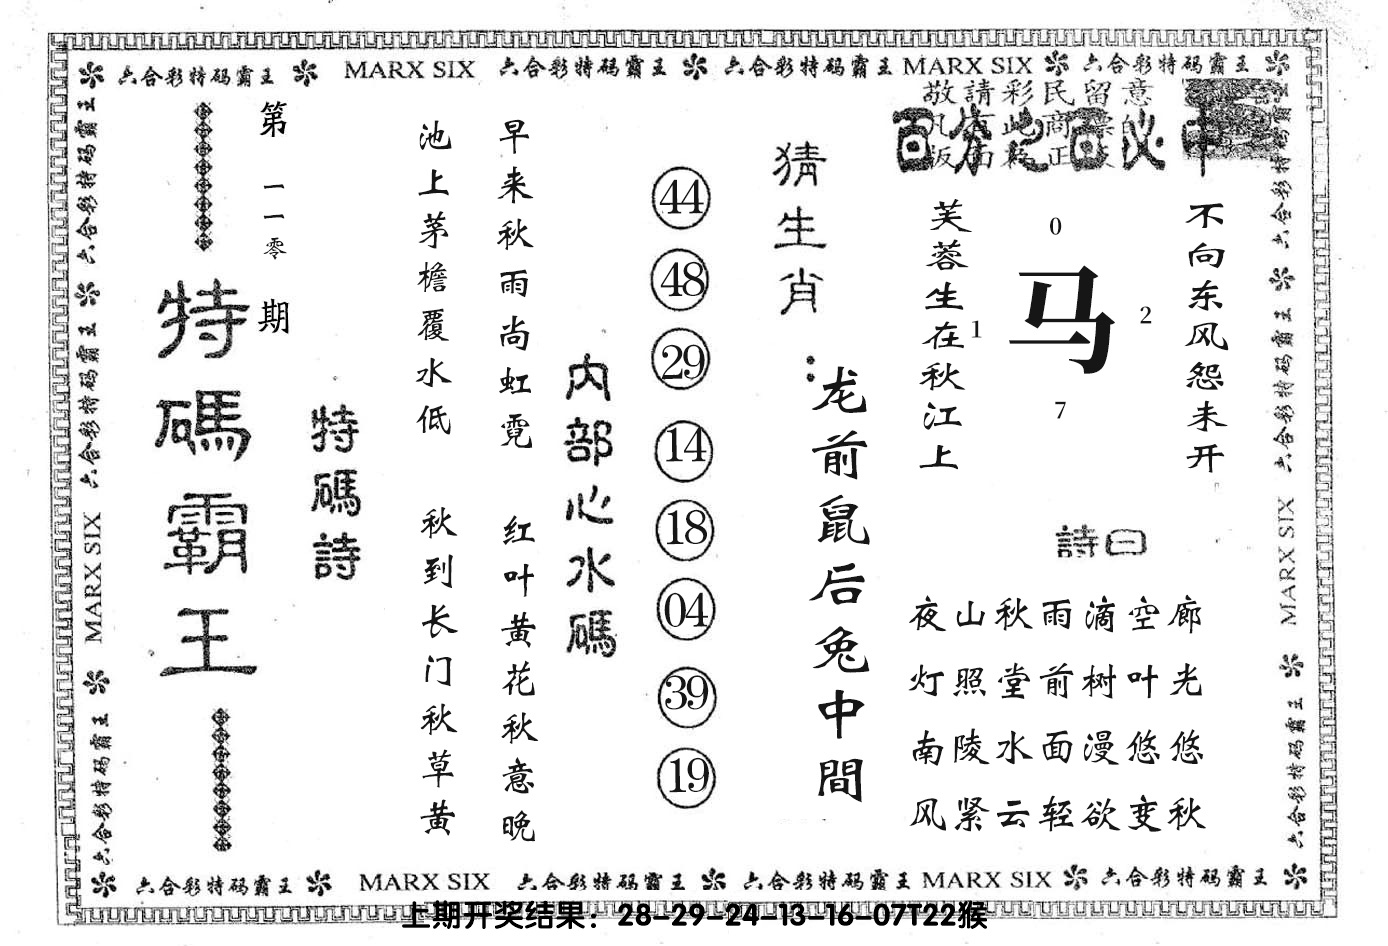 六合彩特码霸王 MARX SIX 六合彩特码霸王 六合彩特码霸王 MARX SIX 六合彩特码霸王
敬請彩民留意
百分之百必中
不向东风怨未开
芙蓉生在秋江上
0
1
马
2
7
詩曰
夜山秋雨滴空廊
灯照堂前树叶光
南陵水面漫悠悠
风紧云轻欲变秋
猜生肖：
龙前鼠后兔中間
44
48
29
14
18
04
39
19
内部心水碼
早来秋雨尚虹霓 红叶黄花秋意晚
池上茅檐覆水低 秋到长门秋草黄
特碼詩
第一一零期
特碼霸王
六合彩特码霸王 六合彩特码霸王 六合彩特码霸王 MARX SIX 六合彩特码霸王
六合彩特码霸王 六合彩特码霸王 MARX SIX 六合彩特码霸王
六合彩特码霸王 MARX SIX 六合彩特码霸王 六合彩特码霸王 MARX SIX 六合彩特码霸王
上期开奖结果：28-29-24-13-16-07T22猴